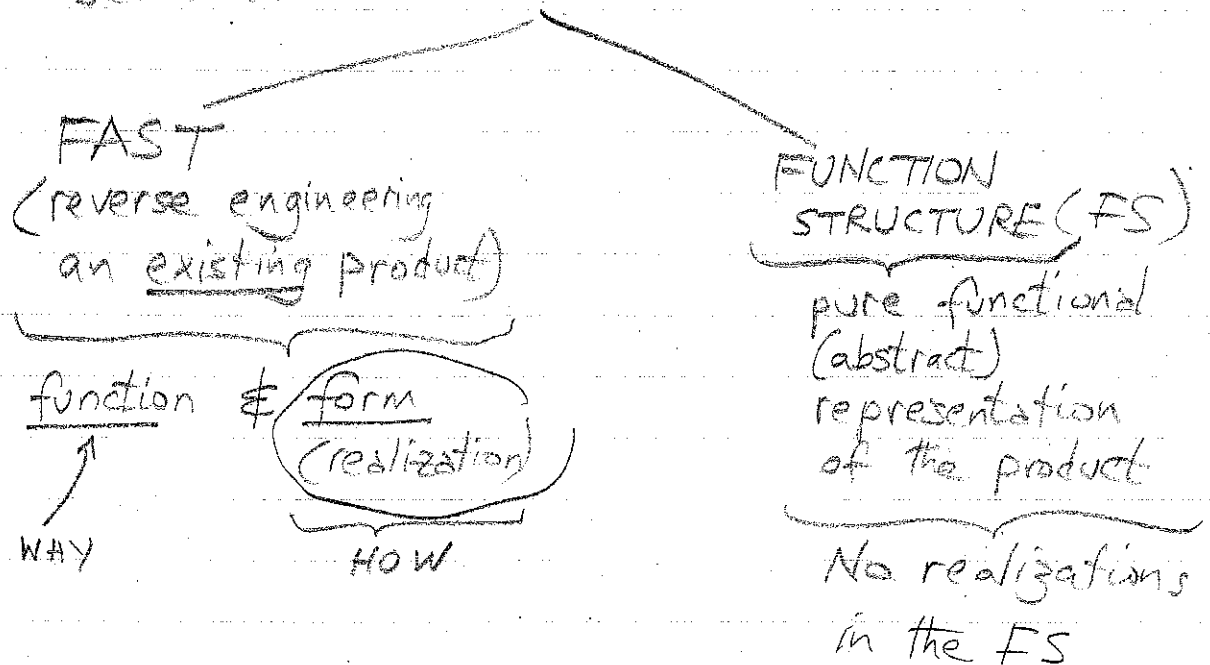 FAST
(reverse engineering
an existing product)
function & form
(realization)
WHY
HOW
FUNCTION
STRUCTURE (FS)
pure functional
(abstract)
representation
of the product
No realizations
in the FS